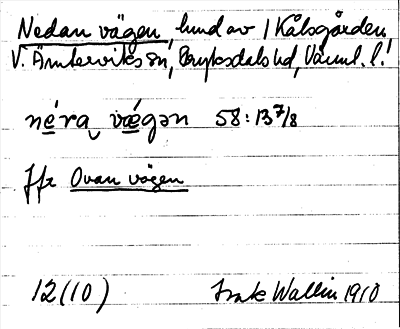 Nedan vägen, hmd av 1 Kålsgården,
V. Ämterviks sn, Fryksdals hd, Värml. l.
néra vǽgən 58:13 7/8
Jfr Ovan vägen
12(10) Wallin 1910